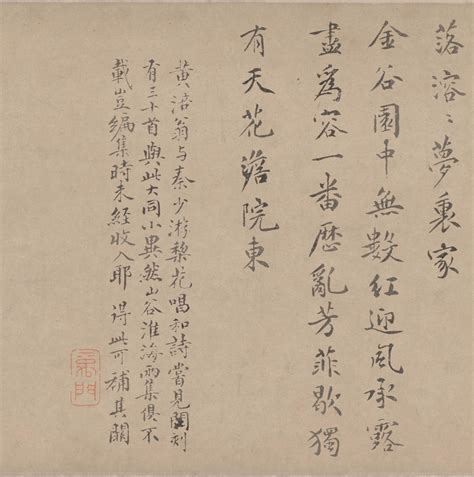 落溶〻夢裏家
金谷園中無數紅迎風承露
盡爲容一番歷亂芳菲歇獨
有天花澹院東
黄涪翁与秦少游梨花唱和詩嘗見閣刻
有三十首與此大同小異然山谷淮海兩集俱不
載豈編集時未經收入耶 得此可補其闕